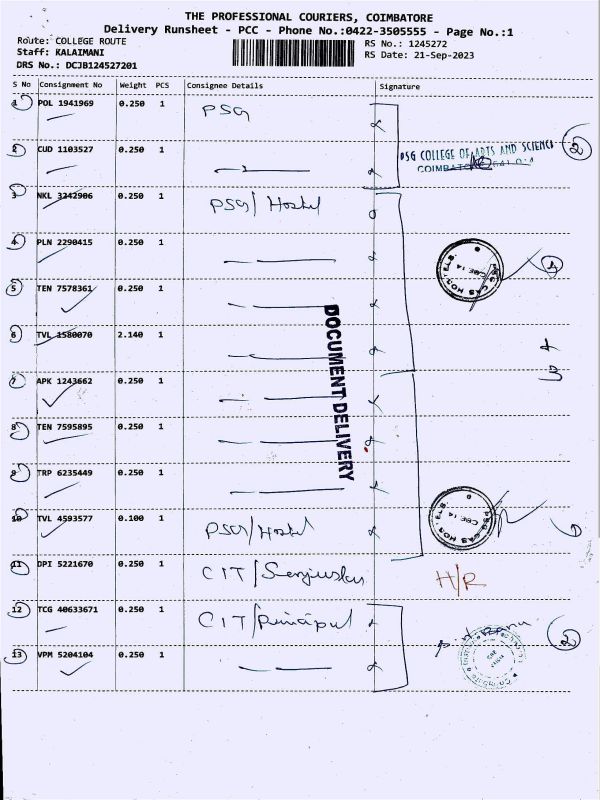 THE PROFESSIONAL COURIERS, COIMBATORE
Delivery Runsheet - PCC - Phone No.:0422-3505555 - Page No.:1
Route: COLLEGE ROUTE
RS No.: 1245272
Staff: KALAIMANI
RS Date: 21-Sep-2023
DRS No.: DCJB124527201
S No Consignment No Weight PCS Consignee Details Signature
1 POL 1941969 0.250 1 PSG
2 CUD 1103527 0.250 1
PSG COLLEGE OF ARTS AND SCIENCE
COIMBATORE
2
3 NKL 3242906 0.250 1 PSG/Hostel
4 PLN 2290415 0.250 1
PSG CAS HOSTELS
CBE 14
4
5 TEN 7578361 0.250 1
6 TVL 1580070 2.140 1
DOCUMENT DELIVERY
7 APK 1243662 0.250 1
8 TEN 7595895 0.250 1
9 TRP 6235449 0.250 1
10 TVL 4593577 0.100 1 PSG/Hostel
PSG CAS HOSTELS
CBE 14
11 DPI 5221670 0.250 1 CIT/
H/R
12 TCG 40633671 0.250 1 CIT/
2
13 VPM 5204104 0.250 1